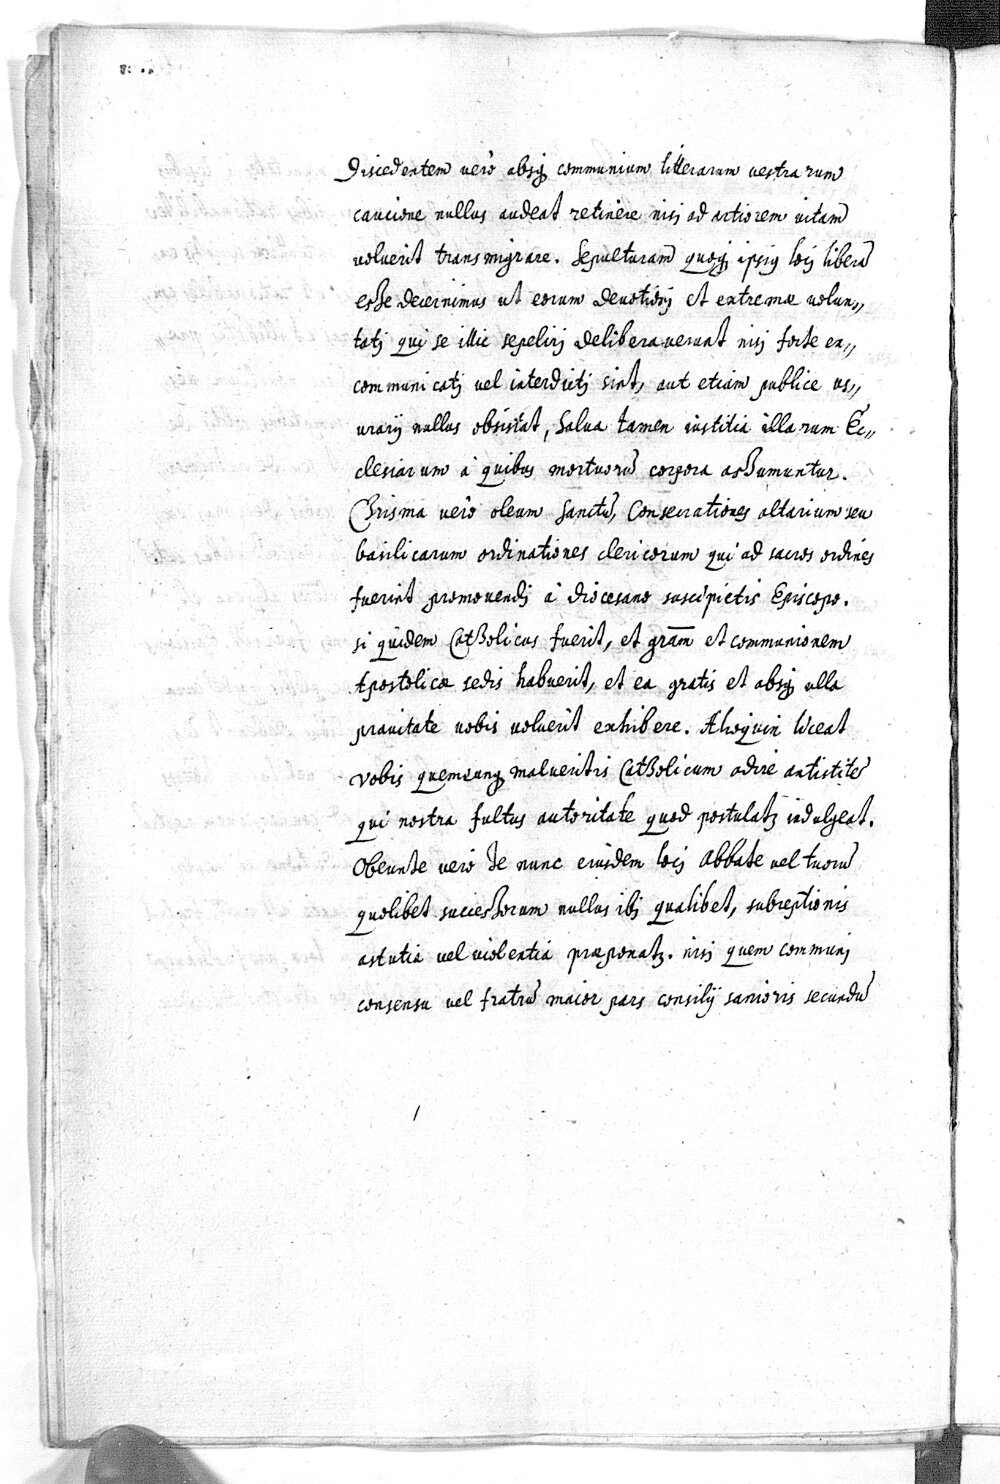 Discedentem verò absq communium litterarum vestrarum
caucione nullus audeat retinere nisj ad artiorem vitam
voluerit transmigrare. Sepulturam quoq ipsiq locj liberā
esse decernimus ut eorum devotionj et extremæ volun,,
tatj qui se illic sepelirj deliberaverunt nisj forte ex,,
communicatj vel interdictj sint, aut etiam publice us,,
urarij nullus obsistat, salva tamen iustitia illarum Ec,,
clesiarum à quibus mortuorū corpora assumuntur.
Chrisma verò oleum sanctū, Consecrationes altarium seu
basilicarum ordinationes clericorum qui ad sacros ordines
fuerint promovendj à diocesano suscipietis Episcopo.
si quidem Catholicus fuerit, et gram̄ et communionem
Apostolicæ sedis habuerit, et ea gratis et absq ulla
pravitate vobis voluerit exhibere. Alioquin liceat
vobis quemcunq malueritis Catholicum adire antistitē
qui nostra fultus autoritate quod postulatz indulgeat.
Obeunte verò te nunc eiusdem locj Abbate vel tuorū
quolibet successorum nullus ibj qualibet, subreptionis
astutia vel violentia præponatz. nisj quem communj
consensu vel fratrū maior pars consilij sanioris secundū